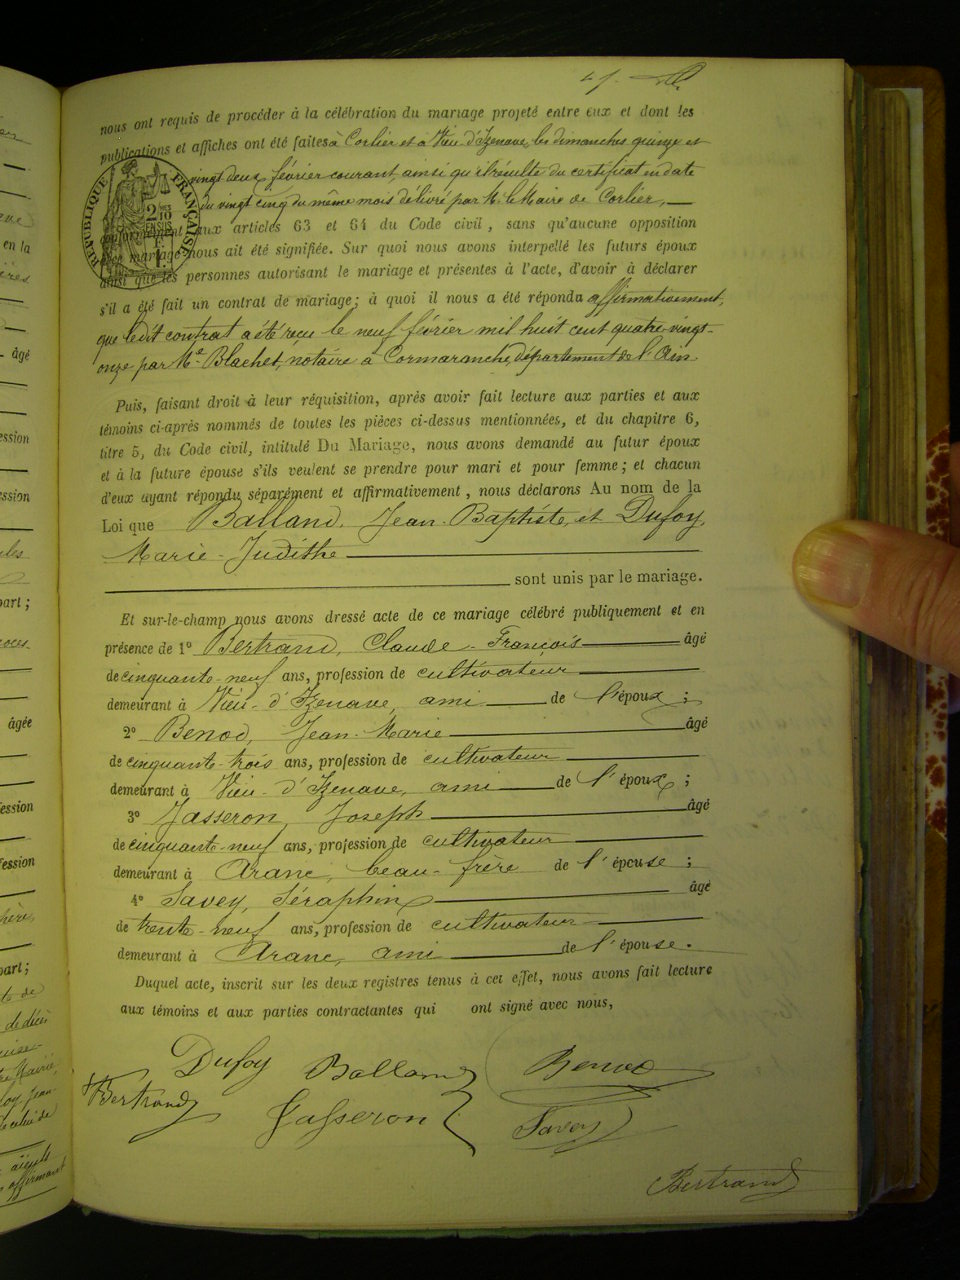 nous ont requis de procéder à la célébration du mariage projeté entre eux et dont les
publications et affiches ont été faites à Corlier et à Vieu d'Izenave, les dimanches quinze et
vingt deux février courant, ainsi qu'il résulte du certificat en date
du vingt cinq du même mois délivré par M. le Maire de Corlier,
conformément aux articles 63 et 64 du Code civil, sans qu'aucune opposition
mariage nous ait été signifiée. Sur quoi nous avons interpellé les futurs époux
ainsi que les personnes autorisant le mariage et présentes à l'acte, d'avoir à déclarer
s'il a été fait un contrat de mariage; à quoi il nous a été répondu affirmativement,
que ledit contrat a été reçu le neuf février mil huit cent quatre-vingt-
onze par Me Blachet, notaire à Cormaranche, département de l'Ain.
Puis, faisant droit à leur réquisition, après avoir fait lecture aux parties et aux
témoins ci-après nommés de toutes les pièces ci-dessus mentionnées, et du chapitre 6,
titre 5, du Code civil, intitulé Du Mariage, nous avons demandé au futur époux
et à la future épouse s'ils veulent se prendre pour mari et pour femme; et chacun
d'eux ayant répondu séparément et affirmativement, nous déclarons Au nom de la
Loi que Balland, Jean-Baptiste, et Dufoy,
Marie-Judithe
sont unis par le mariage.
Et sur-le-champ nous avons dressé acte de ce mariage célébré publiquement et en
présence de 1° Bertrand, Claude-François âgé
de cinquante-neuf ans, profession de cultivateur
demeurant à Vieu-d'Izenave, ami de l'époux;
2° Benod, Jean-Marie âgé
de cinquante-trois ans, profession de cultivateur
demeurant à Vieu-d'Izenave, ami de l'époux;
3° Jasseron, Joseph âgé
de cinquante-neuf ans, profession de cultivateur
demeurant à Aranc, beau-frère de l'épouse;
4° Savey, Séraphin âgé
de trente-neuf ans, profession de cultivateur
demeurant à Aranc, ami de l'épouse.
Duquel acte, inscrit sur les deux registres tenus à cet effet, nous avons fait lecture
aux témoins et aux parties contractantes qui ont signé avec nous,
Dufoy Balland Benod
Bertrand Jasseron Savey
Bertrand
RÉPUBLIQUE FRANÇAISE